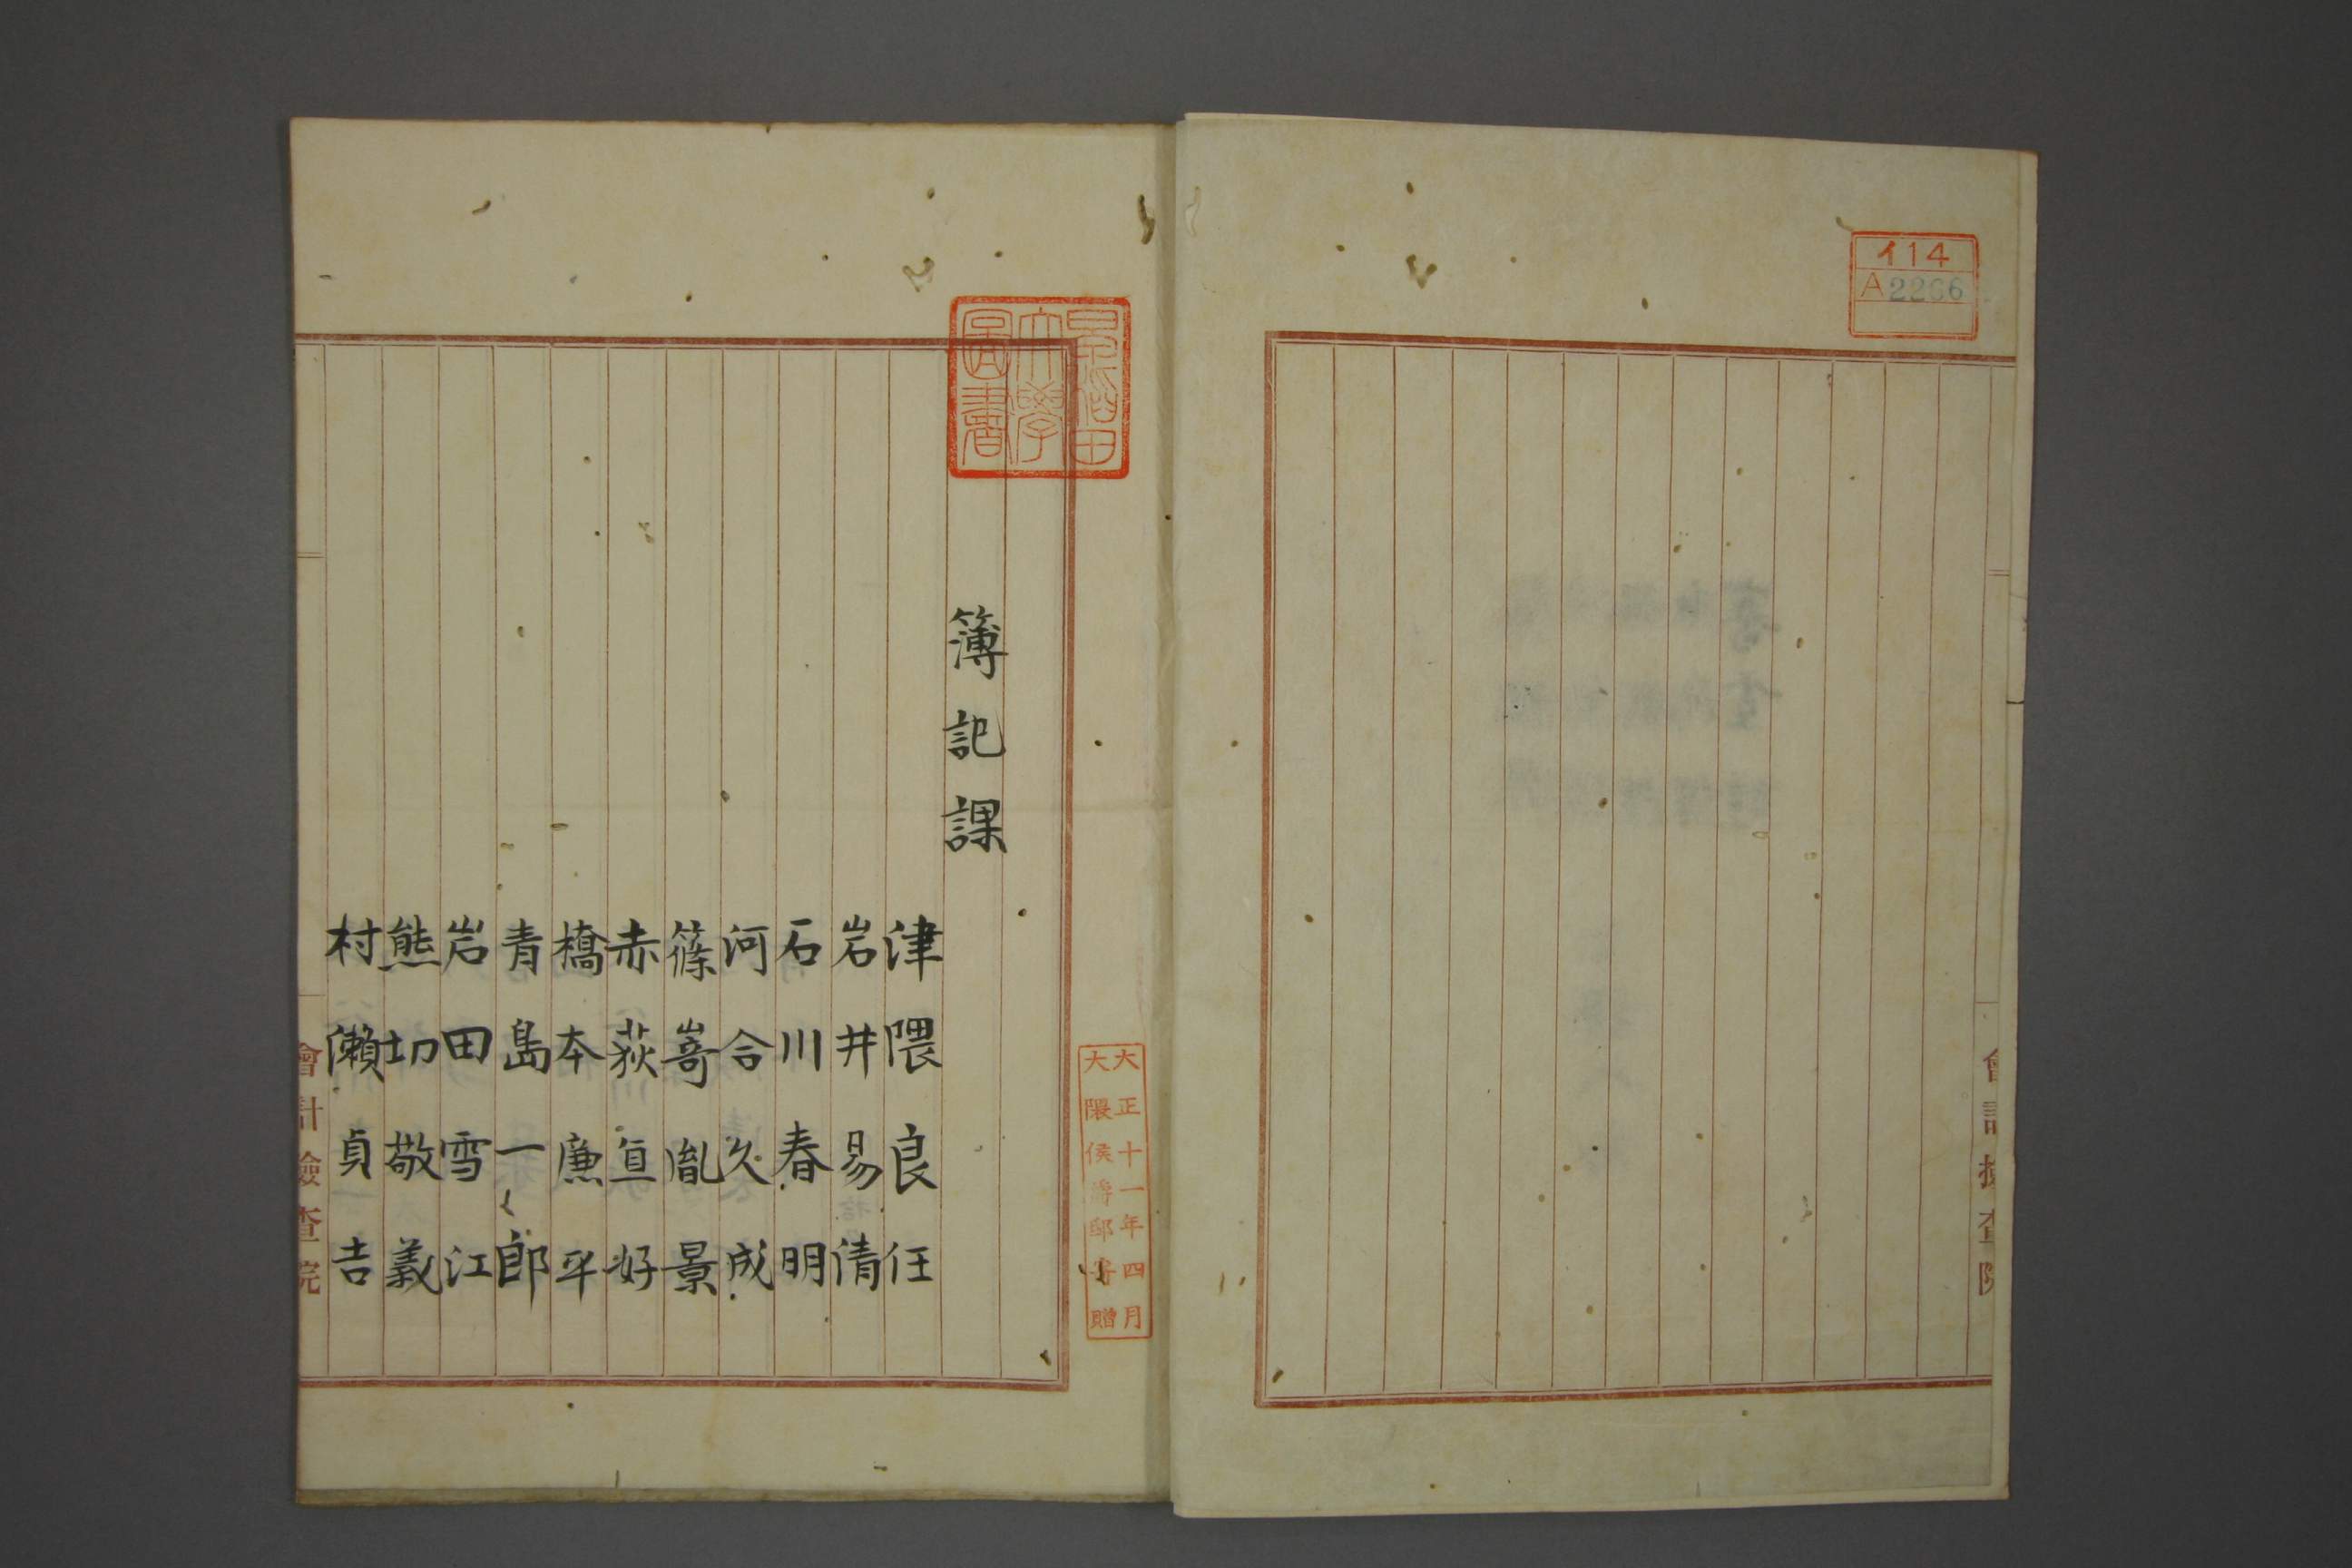 イ14
A2266
會計檢查院
早稲田大學圖書
大正十一年四月
大隈侯爵邸寄贈
簿記課
津隈良任
岩井易清
石川春明
河合久成
篠嵜胤景
赤荻亘好
橋本廉平
青島一郎
岩田雪江
熊切敬義
村瀬貞吉
會計檢查院